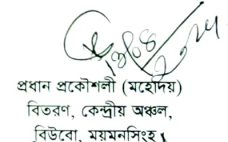 প্রধান প্রকৌশলী (মহোদয়)
বিতরণ, কেন্দ্রীয় অঞ্চল,
বিউবো, ময়মনসিংহ।